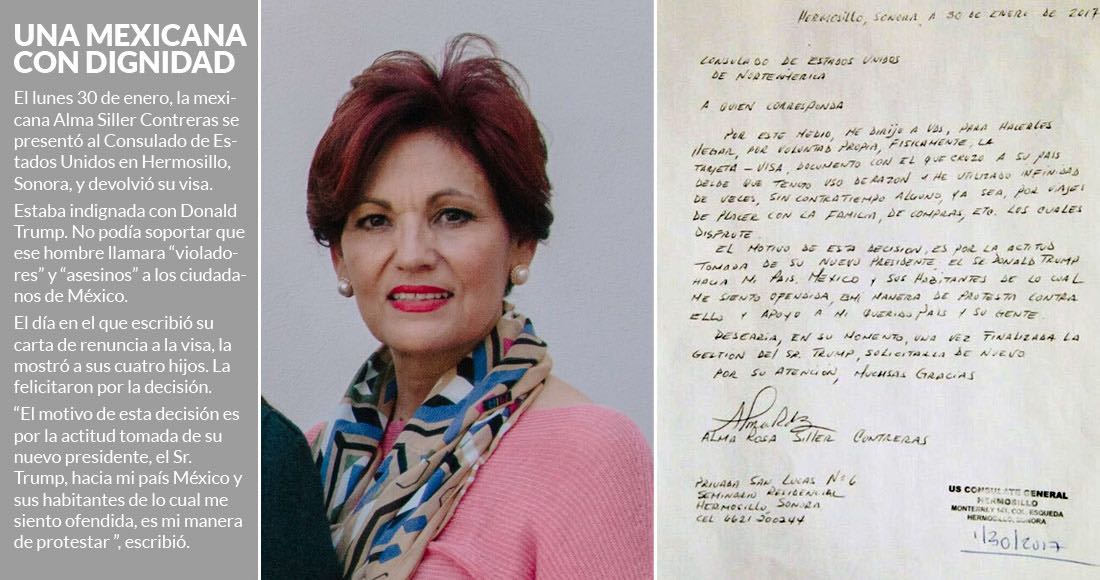 UNA MEXICANA
CON DIGNIDAD
El lunes 30 de enero, la mexi-
cana Alma Siller Contreras se
presentó al Consulado de Es-
tados Unidos en Hermosillo,
Sonora, y devolvió su visa.
Estaba indignada con Donald
Trump. No podía soportar que
ese hombre llamara “violado-
res” y “asesinos” a los ciudada-
nos de México.
El día en el que escribió su
carta de renuncia a la visa, la
mostró a sus cuatro hijos. La
felicitaron por la decisión.
“El motivo de esta decisión es
por la actitud tomada de su
nuevo presidente, el Sr.
Trump, hacia mi país México y
sus habitantes de lo cual me
siento ofendida, es mi manera
de protestar ”, escribió.
HERMOSILLO, SONORA, A 30 DE ENERO DE 2017
CONSULADO DE ESTADOS UNIDOS
DE NORTEAMERICA
A QUIEN CORRESPONDA
POR ESTE MEDIO, ME DIRIJO A UDS, PARA HACERLES
LLEGAR, POR VOLUNTAD PROPIA, FISICAMENTE, LA
TARJETA - VISA, DOCUMENTO CON EL QUE CRUZO A SU PAIS
DESDE QUE TENGO USO DE RAZON Y HE UTILIZADO INFINIDAD
DE VECES, SIN CONTRATIEMPO ALGUNO, YA SEA, POR VIAJES
DE PLACER CON LA FAMILIA, DE COMPRAS, ETC. LOS CUALES
DISFRUTE.
EL MOTIVO DE ESTA DECISION, ES POR LA ACTITUD
TOMADA DE SU NUEVO PRESIDENTE, EL SR DONALD TRUMP
HACIA MI PAIS, MEXICO Y SUS HABITANTES DE LO CUAL
ME SIENTO OFENDIDA, ES MI MANERA DE PROTESTA CONTRA
ELLO Y APOYO A MI QUERIDO PAIS Y SU GENTE.
DESEARIA, EN SU MOMENTO, UNA VEZ FINALIZADA LA
GESTION DEL SR. TRUMP, SOLICITARLA DE NUEVO
POR SU ATENCION, MUCHSAS GRACIAS
ALMA ROSA SILLER CONTRERAS
PRIVADA SAN LUCAS Nº 6
SEMINARIO RESIDENCIAL
HERMOSILLO, SONORA
CEL 6621 500244
US CONSULATE GENERAL
HERMOSILLO
MONTERREY 141, COL. ESQUEDA
HERMOSILLO, SONORA
1/30/2017